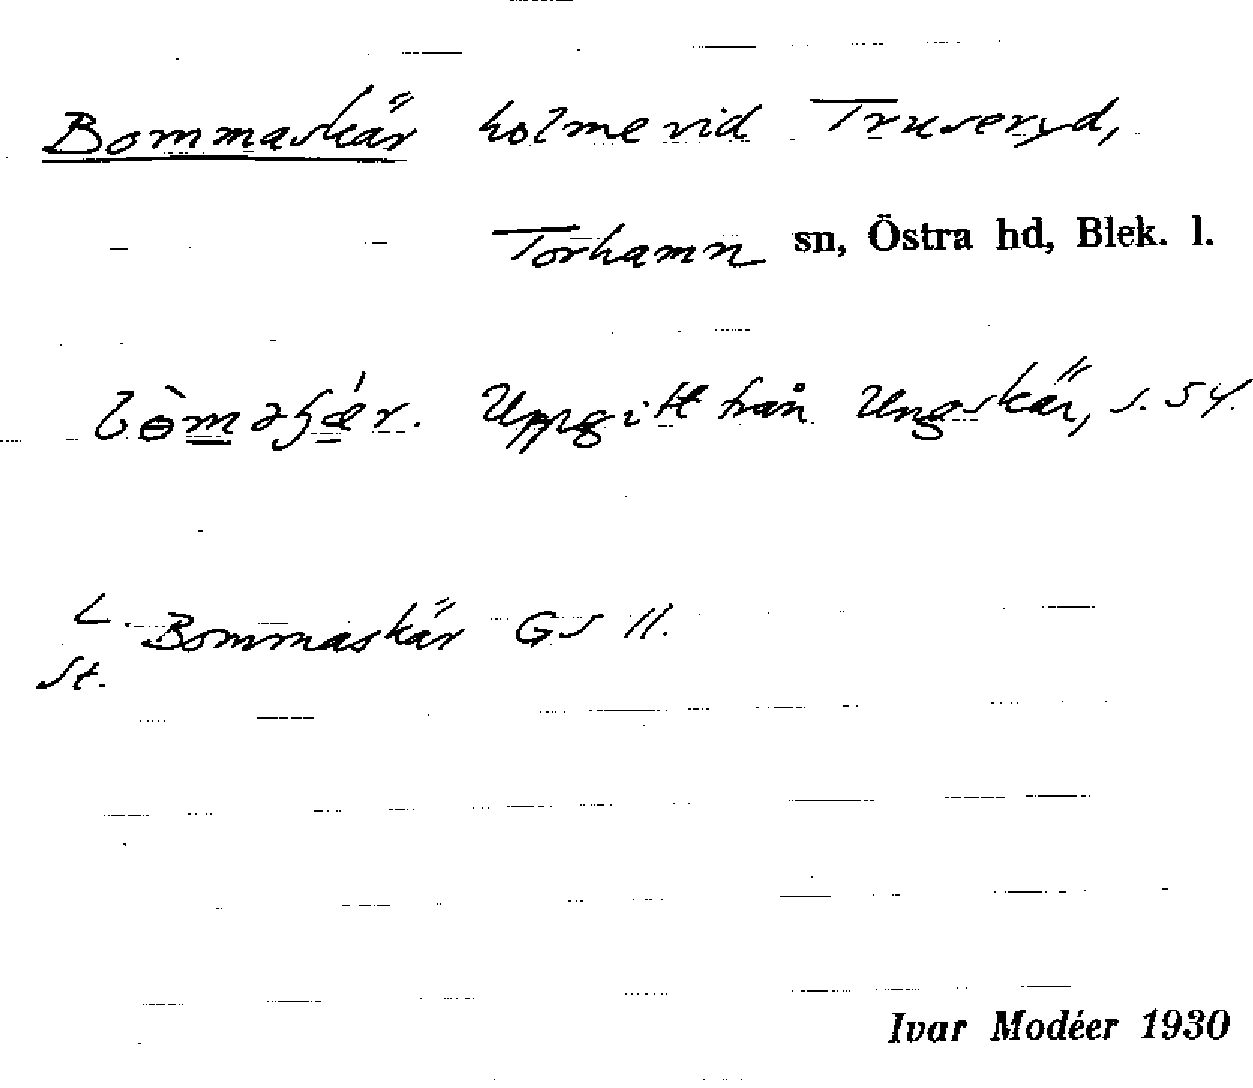 Bommaskär holme vid Truseryd,
Torhamn sn, Östra hd, Blek. l.
Uppgift från Ungskär, s. 54.
L. Bommaskär GS 11.
St.
Ivar Modéer 1930